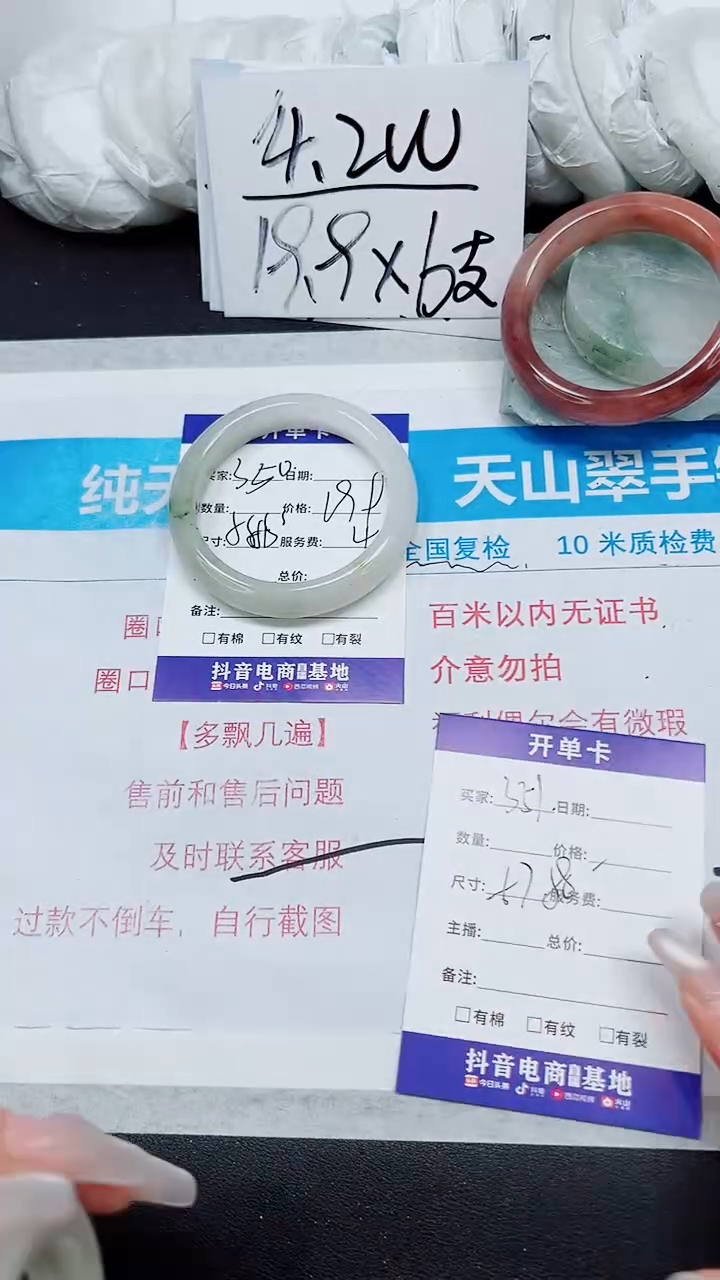 4.2W
19.9×6支
开单卡
买家:350 日期:
数量: 价格:
尺寸: 服务费:
总价:
备注:
□有棉 □有纹 □有裂
抖音电商 基地
今日头条 抖音 西瓜视频 火山
纯天
天山翠手
全国复检 10米质检费
圈口
百米以内无证书
圈口
介意勿拍
【多飘几遍】
会有微瑕
售前和售后问题
及时联系客服
过款不倒车,自行截图
开单卡
买家:351 日期:
数量: 价格:
尺寸: 服务费:
主播: 总价:
备注:
□有棉 □有纹 □有裂
抖音电商 基地
今日头条 抖音 西瓜视频 火山